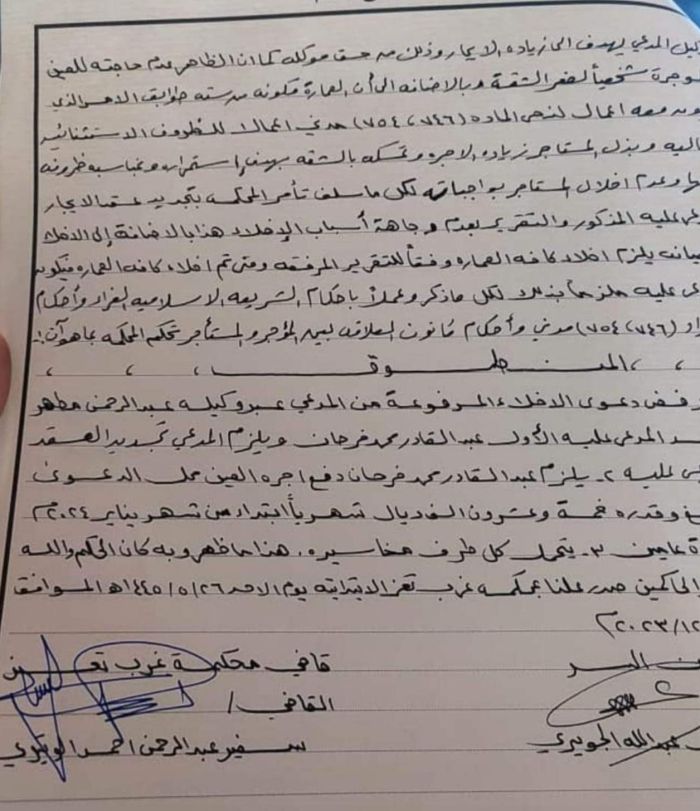 المدعي يهدف الى زيادة الايجار وذلك من حق موكله كما ان الظاهر عدم حاجته للعين
شخصياً لصغر الشقة وبالاضافة الى أن العمارة مكونه من ستة طوابق الامر الذي
معه اعمال لنص المادة (٧٤٦، ٧٥٤) مدني اعمالا للظروف الاستثنائية
وبذل المستاجر زيادة الاجره وتمسكه بالشقه بهدف إستمراره
وعدم اخلال المستاجر بواجباته لكل ما سلف تأمر المحكمة بتجديد عقد الايجار
عليه المذكور والتقرير بعدم وجاهة أسباب الإخلاء هذا بالاضافة إلى الاخلاء
يلزم اخلاء كافة العماره وفقاً للتقرير المرفقه ومتى تم اخلاء كافه العماره فيكون
عليه ملزماً بذلك لكل ماذكر وعملاً باحكام الشريعه الاسلاميه الغراء وأحكام
(٧٤٦، ٧٥٤) مدني وأحكام قانون العلاقه بين المؤجر والمستأجر تحكم المحكمه بما هو آتٍ:
، ، المنطوق ، ، ،
رفض دعوى الاخلاء المرفوعة من المدعي عبر وكيله عبدالرحمن مطهر
ضد المدعى عليه الأول عبدالقادر محمد فرحان ويلزم المدعي تجديد العقد
عليه ٢- يلزم عبدالقادر محمد فرحان دفع اجره العين محل الدعوى
وقدره خمسة وعشرون الف ريال شهرياً ابتداء من شهر يناير ٢٠٢٤م
عامين ٣- يتحمل كل طرف مخاسيره. هذا ما ظهر وبه كان الحكم والله
الحاكمين صدر علنا بمحكمه غرب تعز الابتدايه يوم الاحد ١٤٤٥/٥/٢٦ه الموافق
٢٠٢٣/١٢م
السر قاضي محكمة غرب تعز
القاضي/
عبدالله الجويري عبدالرحمن احمد